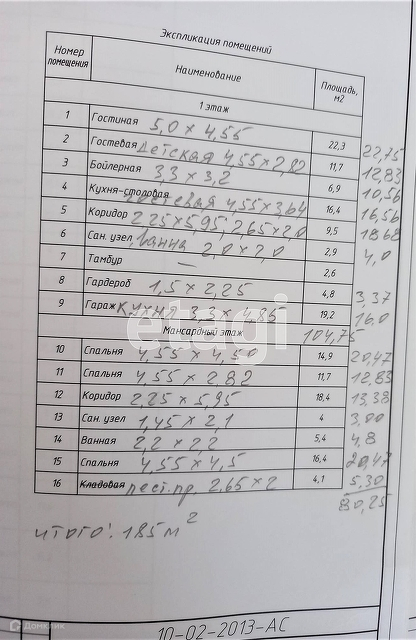 Экспликация помещений
Номер помещения Наименование Площадь, м2
1 этаж
1 Гостиная 5,0 × 4,55 22,3 22,75
2 Гостевая детская 4,55×2,82 11,7 12,83
3 Бойлерная 3,3 × 3,2 6,9 10,56
4 Кухня-столовая гостевая 4,55×3,64 16,4 16,56
5 Коридор 2,25×5,95; 2,65×2,0 9,5 18,68
6 Сан. узел, ванна 2,0×2,0 2,9 4,0
7 Тамбур — 2,6
8 Гардероб 1,5 × 2,25 4,8 3,37
9 Гараж кухня 3,3 × 4,85 19,2 16,0
Мансардный этаж 104,75
10 Спальня 4,55 × 4,50 14,9 20,47
11 Спальня 4,55 × 2,82 11,7 12,83
12 Коридор 2,25 × 5,95 18,4 13,38
13 Сан. узел 1,45 × 2,1 4 3,00
14 Ванная 2,2 × 2,2 5,4 4,8
15 Спальня 4,55 × 4,5 16,4 20,47
16 Кладовая лест. пр. 2,65×2 4,1 5,30
80,25
итого: 185 м²
etagi
Домклик
10-02-2013-АС